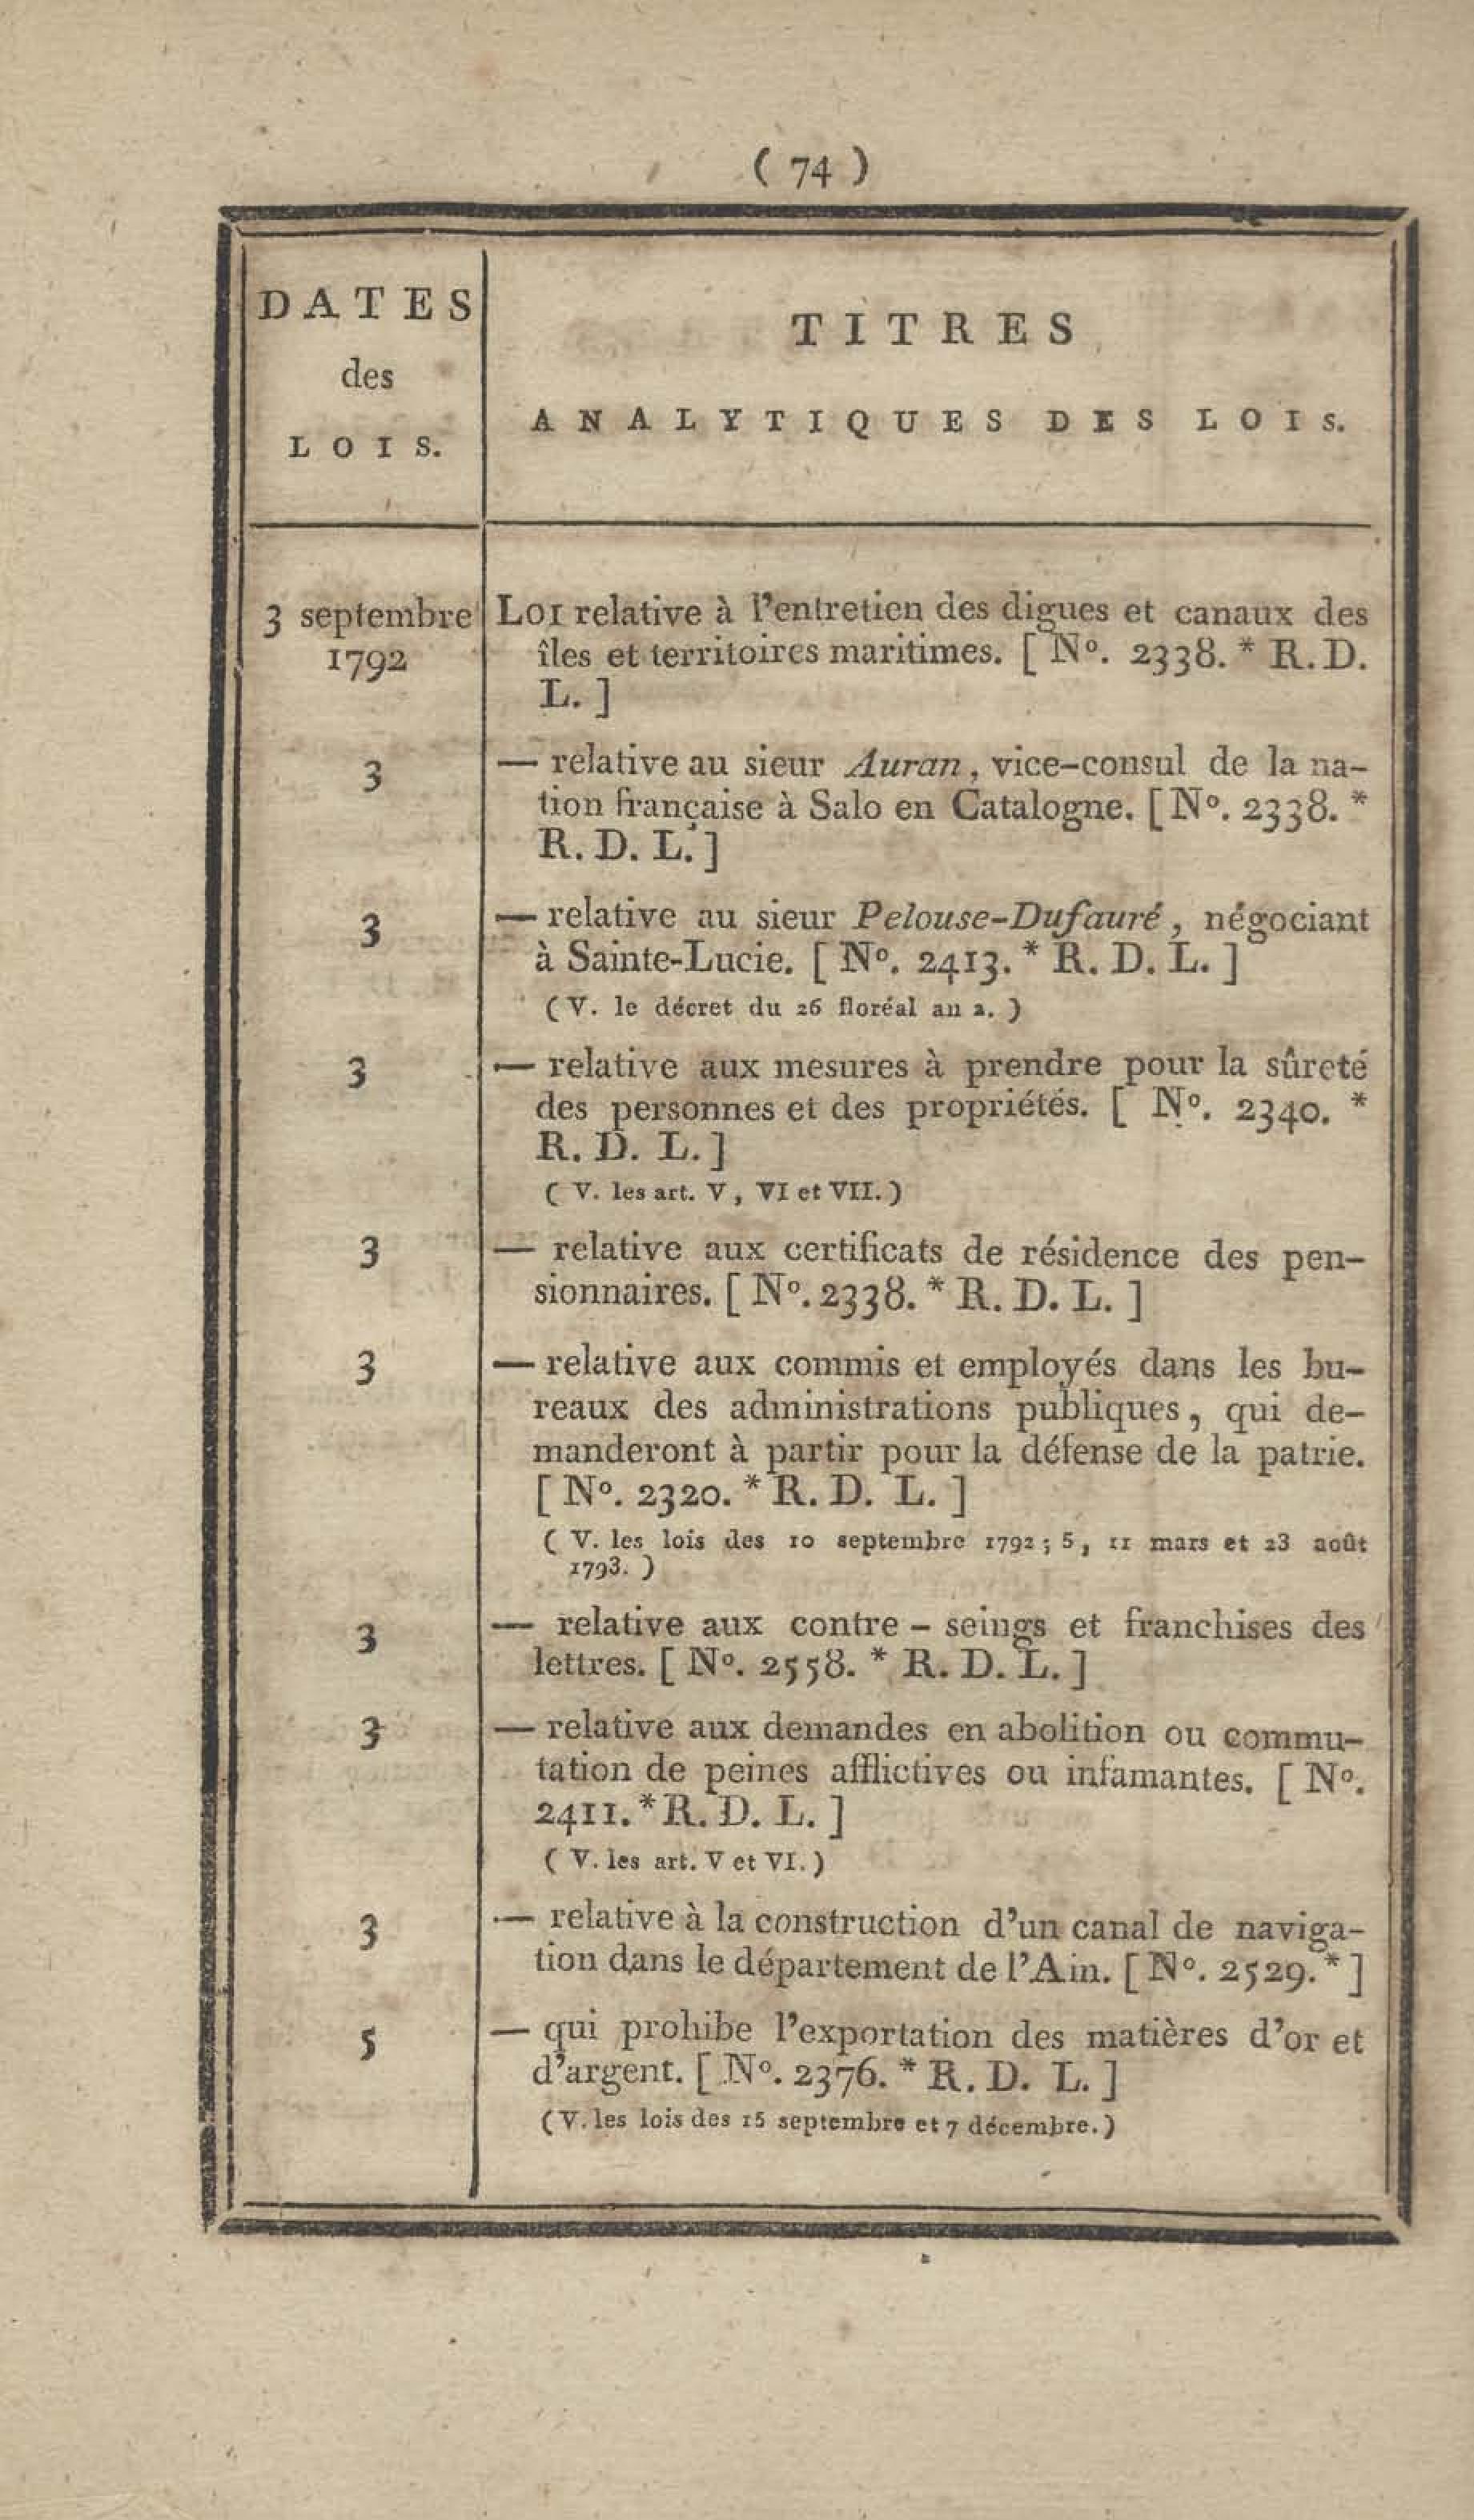 ( 74 )
DATES
des
LOIS.
TITRES
ANALYTIQUES DES LOIS.
3 septembre
1792
LOI relative à l'entretien des digues et canaux des
îles et territoires maritimes. [ Nº. 2338. * R. D.
L. ]
3
— relative au sieur Auran, vice-consul de la na-
tion française à Salo en Catalogne. [ Nº. 2338. *
R. D. L. ]
3
— relative au sieur Pelouse-Dufauré, négociant
à Sainte-Lucie. [ Nº. 2413. * R. D. L. ]
( V. le décret du 26 floréal an 2. )
3
— relative aux mesures à prendre pour la sûreté
des personnes et des propriétés. [ Nº. 2340. *
R. D. L. ]
( V. les art. V, VI et VII. )
3
— relative aux certificats de résidence des pen-
sionnaires. [ Nº. 2338. * R. D. L. ]
3
— relative aux commis et employés dans les bu-
reaux des administrations publiques, qui de-
manderont à partir pour la défense de la patrie.
[ Nº. 2320. * R. D. L. ]
( V. les lois des 10 septembre 1792 ; 5, 11 mars et 23 août
1793. )
3
— relative aux contre-seings et franchises des
lettres. [ Nº. 2558. * R. D. L. ]
3
— relative aux demandes en abolition ou commu-
tation de peines afflictives ou infamantes. [ Nº.
2411. * R. D. L. ]
( V. les art. V et VI. )
3
— relative à la construction d'un canal de naviga-
tion dans le département de l'Ain. [ Nº. 2529. * ]
5
— qui prohibe l'exportation des matières d'or et
d'argent. [ Nº. 2376. * R. D. L. ]
( V. les lois des 15 septembre et 7 décembre. )